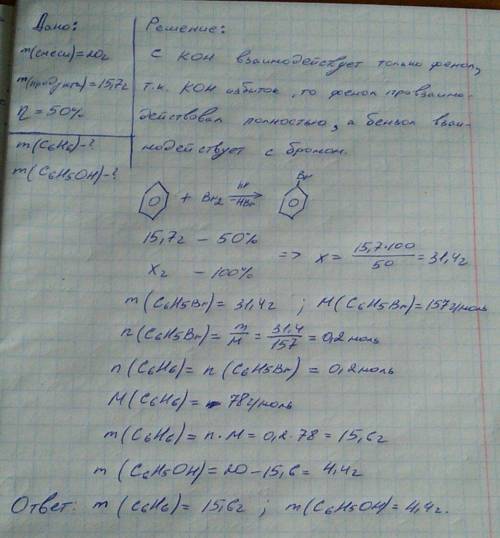 Дано:
m(смеси)=20г
m(продукта)=15,7г
η = 50%
m(C6H6)-?
m(C6H5OH)-?
Решение:
С KOH взаимодействует только фенол,
т.к. KOH избыток, то фенол провзаимо-
действовал полностью, а бензол взаи-
модействует с бромом.
+ Br2 hν → -HBr Br
15,7г – 50%
xг – 100%
=> x = 15,7*100 / 50 = 31,4г
m(C6H5Br) = 31,4г ; M(C6H5Br)=157г/моль
n(C6H5Br) = m/M = 31,4/157 = 0,2 моль
n(C6H6) = n(C6H5Br) = 0,2 моль
M(C6H6) = 78г/моль
m(C6H6) = n·M = 0,2·78 = 15,6г
m(C6H5OH) = 20-15,6 = 4,4г
Ответ: m(C6H6) = 15,6г ; m(C6H5OH) = 4,4г.